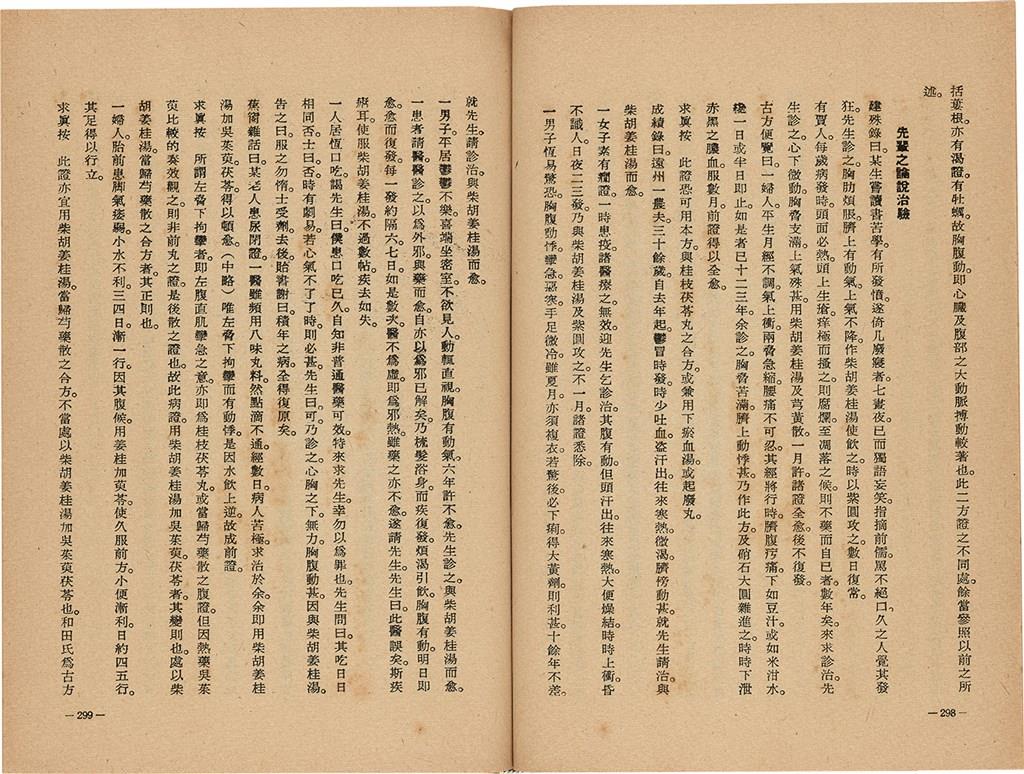 括蔞根。亦有渴證。有牡蠣。故胸腹動。即心臟及腹部之大動脈搏動較著也。此二方證之不同處。餘當參照以前之所
述。
先輩之論說治驗
建殊錄曰。某生嘗讀書苦學。有所發憤。遂倚几廢寢者七晝夜。已而獨語妄笑。指摘前儒。罵不絕口。久之人覺其發
狂。先生診之。胸肋煩脹。臍上有動氣。上氣不降。作柴胡姜桂湯使飲之。時以紫圓攻之。數日復常。
有賈人。每歲病發時。頭面必熱。頭上生瘡。痒極而搔之。則腐爛。至凋落之候。則不藥而自已者數年矣。來求診治。先
生診之。心下微動。胸脅支滿。上氣殊甚。用柴胡姜桂湯及芎黃散。一月許諸證全愈。後不復發。
古方便覽曰。一婦人平生月經不調。氣上衝。兩脅急縮。腰痛不可忍。其經將行時。臍腹㽲痛。下如豆汁或如米泔水。
纔一日或半日即止。如是者已十二三年。余診之。胸脅苦滿。臍上動悸甚。乃作此方及硝石大圓雜進之。時時下泄
赤黑之膿血。服數月。前證得以全愈。
求眞按　此證恐可用本方。與桂枝茯苓丸之合方。或兼用下瘀血湯或起廢丸。
成績錄曰。遠州一農夫。三十餘歲。自去年起。鬱冒時發。時少吐血。盜汗出。往來寒熱。微渴。臍傍動甚。就先生請治。與
柴胡姜桂湯而愈。
一女子素有癇證。一時患疫。諸醫療之無效。迎先生乞診治。其腹有動。但頭汗出。往來寒熱。大便燥結。時時上衝。昏
不識人。日夜二三發。乃與柴胡姜桂湯及紫圓攻之。不一月。諸證悉除。
一男子恆易驚恐。胸腹動悸攣急。惡寒手足微冷。雖夏月亦須複衣。若驚後必下痢。得大黃劑則利甚。十餘年不差。
—298—
就先生請診治。與柴胡姜桂湯而愈。
一男子平居鬱鬱不樂。喜端坐密室。不欲見人。動輒直視。胸腹有動氣。六年許不愈。先生診之。與柴胡姜桂湯而愈。
一患者請醫。醫診之。以爲外邪。與藥而愈。自亦以爲邪已解矣。乃梳髮浴身而疾復發。煩渴引飲。胸腹有動。明日即
愈。愈而復發。每一發約隔六七日。如是數次。醫不爲虛。即爲邪熱。雖藥之亦不愈。遂請先生。先生曰。此醫誤矣。斯疾
瘧耳。使服柴胡姜桂湯。不過數帖。疾去如失。
一人居恆口吃。謁先生曰。僕患口吃已久。自知非普通醫藥可效。特來求先生。幸勿以爲罪也。先生問曰。其吃日日
相同否。士曰否。時有劇易。若心氣不了了時。則必甚。先生曰可。乃診之。心胸之下無力。胸腹動甚。因與柴胡姜桂湯。
告之曰。服之勿惰。士受劑去。後貽書謝曰。積年之病。全得復原矣。
蕉窗雜話曰。某老人患尿閉證。一醫雖頻用八味丸料。然點滴不通。經數日。病人苦極。求治於余。余即用柴胡姜桂
湯加吳茱萸茯苓。得以頓愈。（中略）唯左脅下拘攣而有動悸。是因水飲上逆。故成前證。
求眞按　所謂左脅下拘攣者。即左腹直肌攣急之意。亦即爲桂枝茯苓丸。或當歸芍藥散之腹證。但因熱藥吳茱
萸比較的奏效觀之。則非前丸之證。是後散之證也。故此病證用柴胡姜桂湯加吳茱萸。茯苓者。其變則也。處以柴
胡姜桂湯。當歸芍藥散之合方者。其正則也。
一婦人。胎前患脚氣痿弱。小水不利。三四日漸一行。因其腹候。用姜桂加茱苓。使久服前方。小便漸利。日約四五行。
其足得以行立。
求眞按　此證亦宜用柴胡姜桂湯。當歸芍藥散之合方。不當處以柴胡姜桂湯加吳茱萸茯苓也。和田氏爲古方
—299—